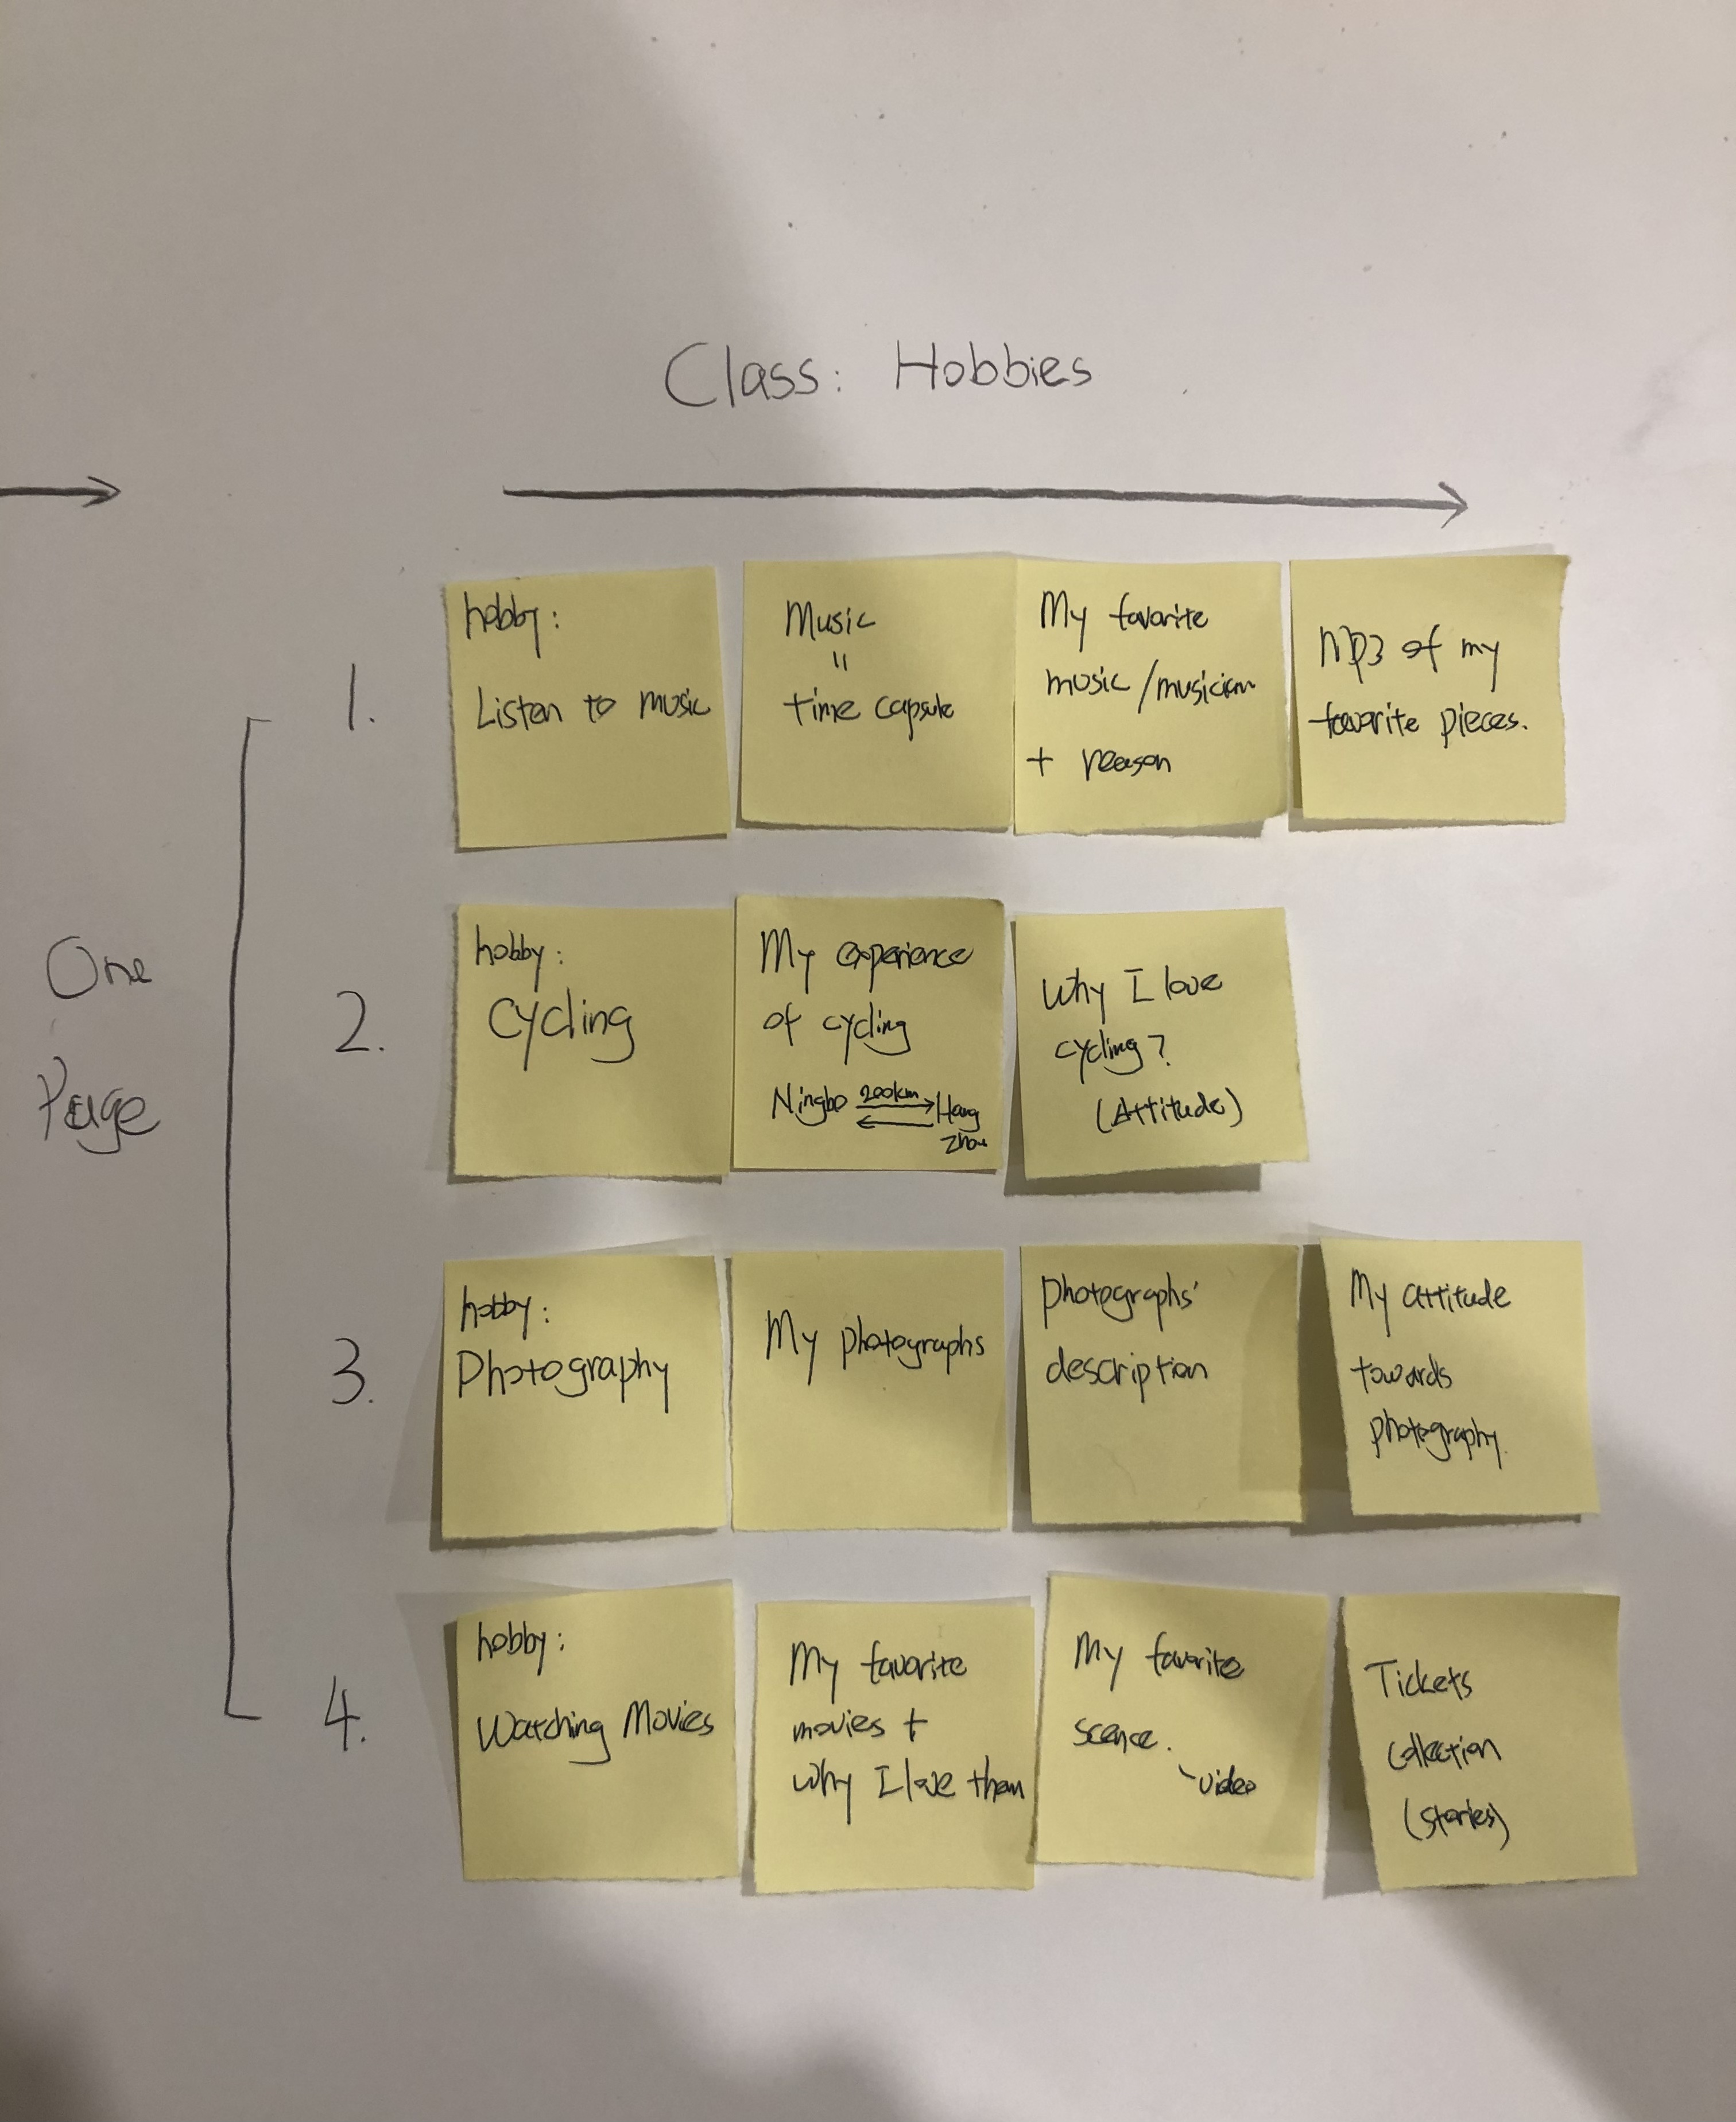 Class: Hobbies
One
Page
1.
hobby:
Listen to music
Music
=
time capsule
My favorite
music/musician
+ reason
MP3 of my
favorite pieces.
2.
hobby:
Cycling
My experience
of cycling
Ningbo 200km Hang
zhou
Why I love
cycling?
(Attitude)
3.
hobby:
Photography
My photographs
photographs'
description
My attitude
towards
photography.
4.
hobby:
Watching Movies
My favorite
movies +
why I love them
My favorite
scence.
video
Tickets
collection
(stories)